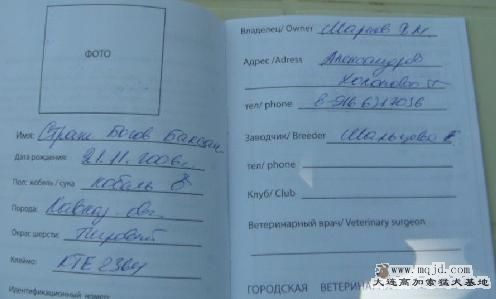 ФОТО
Имя: Страж Богов Баксан
Дата рождения: 21.11.2006г.
Пол: кобель / сука кобель
Порода: Кавказ. овч.
Окрас шерсти: Тигровый
Клеймо: КТЕ 2364
Идентификационный номер
Владелец/ Owner
Адрес /Adress Александров
тел/ phone
Заводчик/ Breeder Мальцева Е
тел/ phone
Клуб/ Club
Ветеринарный врач/ Veterinary surgeon
ГОРОДСКАЯ ВЕТЕРИНА
www.mqjd.com
大连高加索猛犬基地